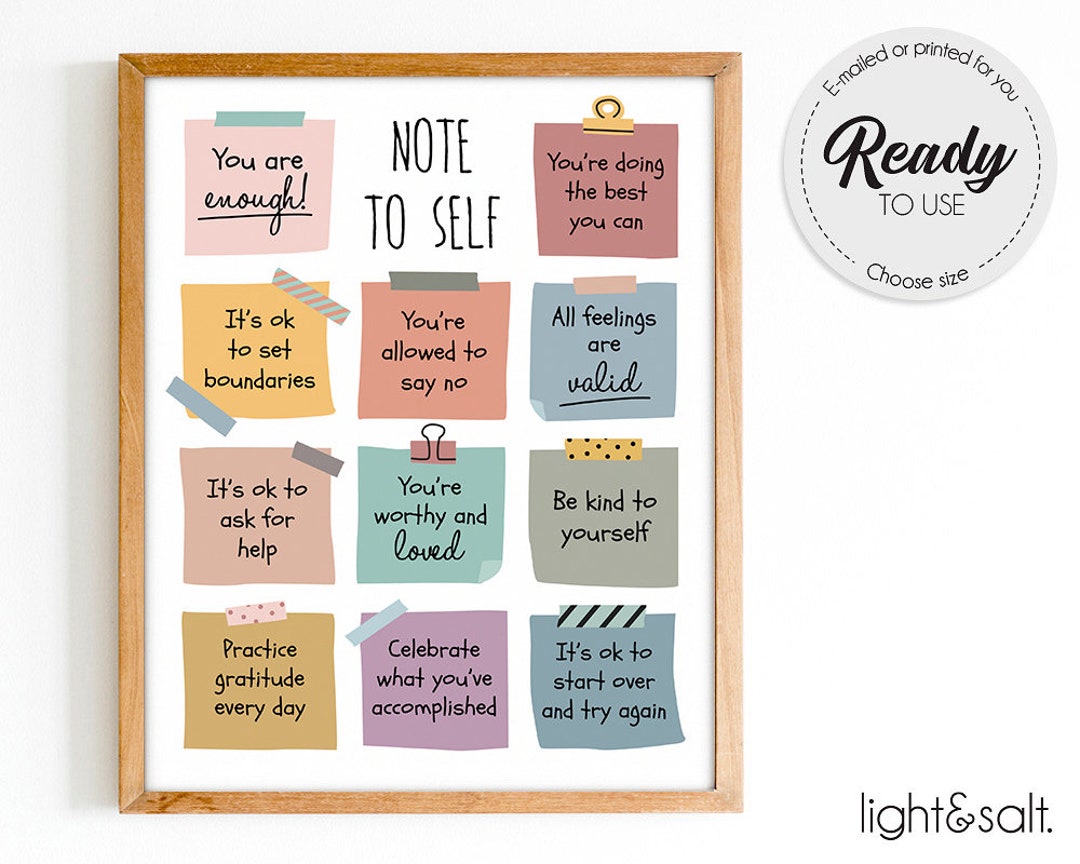 You are
enough!
NOTE
TO SELF
You're doing
the best
you can
It's ok
to set
boundaries
You're
allowed to
say no
All feelings
are
valid
It's ok to
ask for
help
You're
worthy and
loved
Be kind to
yourself
Practice
gratitude
every day
Celebrate
what you've
accomplished
It's ok to
start over
and try again
E-mailed or printed for you
Ready
TO USE
Choose size
light&salt.